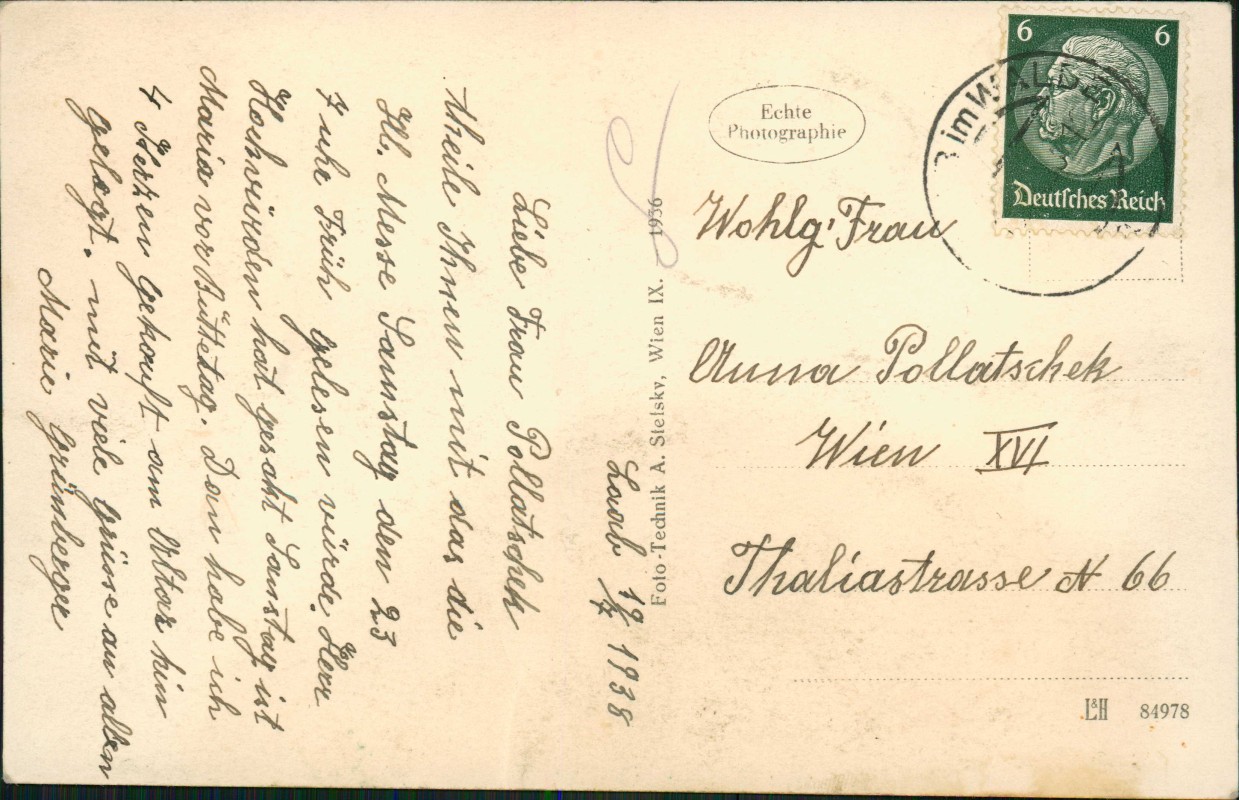 Laab 19/7 1938
Liebe Frau Pollatschek
theile Ihnen mit das die
Hl. Messe Samstag den 23
7 uhr Früh gelesen würde. Herr
Hochwürden hat gesakt Samstag ist
Maria vor Büttetag. Dan habe ich
4 Herzen gekauft am Altar hin
gelegt. mit viele Grüsse an allen
Marie Grünberger
Foto-Technik A. Stefsky, Wien IX. 1936
Echte
Photographie
6 6
Deutsches Reich
im WALDE
Wohlg. Frau
Anna Pollatschek
Wien XVI
Thaliastrasse N 66
L&H 84978